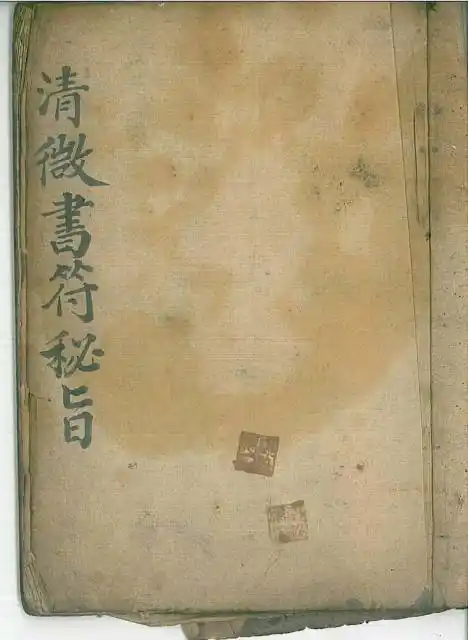 清微書符秘旨